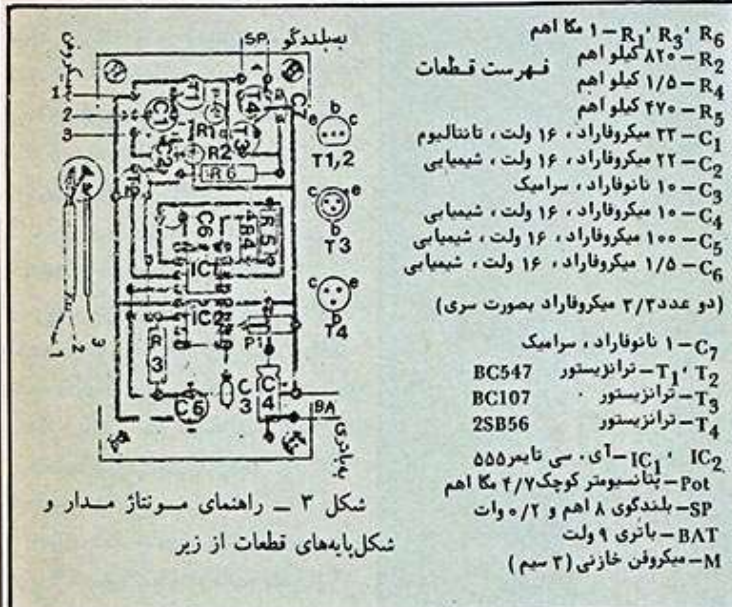 فهرست قطعات
R₁، R₃، R₆ – ۱ مگا اهم
R₂ – ۸۲۰ کیلو اهم
R₄ – ۱/۵ کیلو اهم
R₅ – ۴۷۰ کیلو اهم
C₁ – ۳۳ میکروفاراد، ۱۶ ولت، تانتالیوم
C₂ – ۲۲ میکروفاراد، ۱۶ ولت، شیمیایی
C₃ – ۱۰ نانوفاراد، سرامیک
C₄ – ۱۰ میکروفاراد، ۱۶ ولت، شیمیایی
C₅ – ۱۰۰ میکروفاراد، ۱۶ ولت، شیمیایی
C₆ – ۱/۵ میکروفاراد، ۱۶ ولت، شیمیایی
(دو عدد ۳/۳ میکروفاراد بصورت سری)
C₇ – ۱ نانوفاراد، سرامیک
T₁، T₂ – ترانزیستور BC547
T₃ – ترانزیستور BC107
T₄ – ترانزیستور 2SB56
IC₁، IC₂ – آی. سی تایمر ۵۵۵
Pot – پتانسیومتر کوچک ۴/۷ مگا اهم
SP – بلندگوی ۸ اهم و ۰/۲ وات
BAT – باتری ۹ ولت
M – میکروفن خازنی (۳ سیم)
به بلندگو
SP
میکروفن
1
2
3
T1
T4
C7
C1
R1
T3
R2
R6
C6
R4
R5
IC
IC2
P1
R3
C5
C3
C4
BA
به باتری
e b c
T1,2
c e
b
T3
c e
b
T4
1 2 3
شکل ۳ – راهنمای مونتاژ مدار و
شکل پایه‌های قطعات از زیر